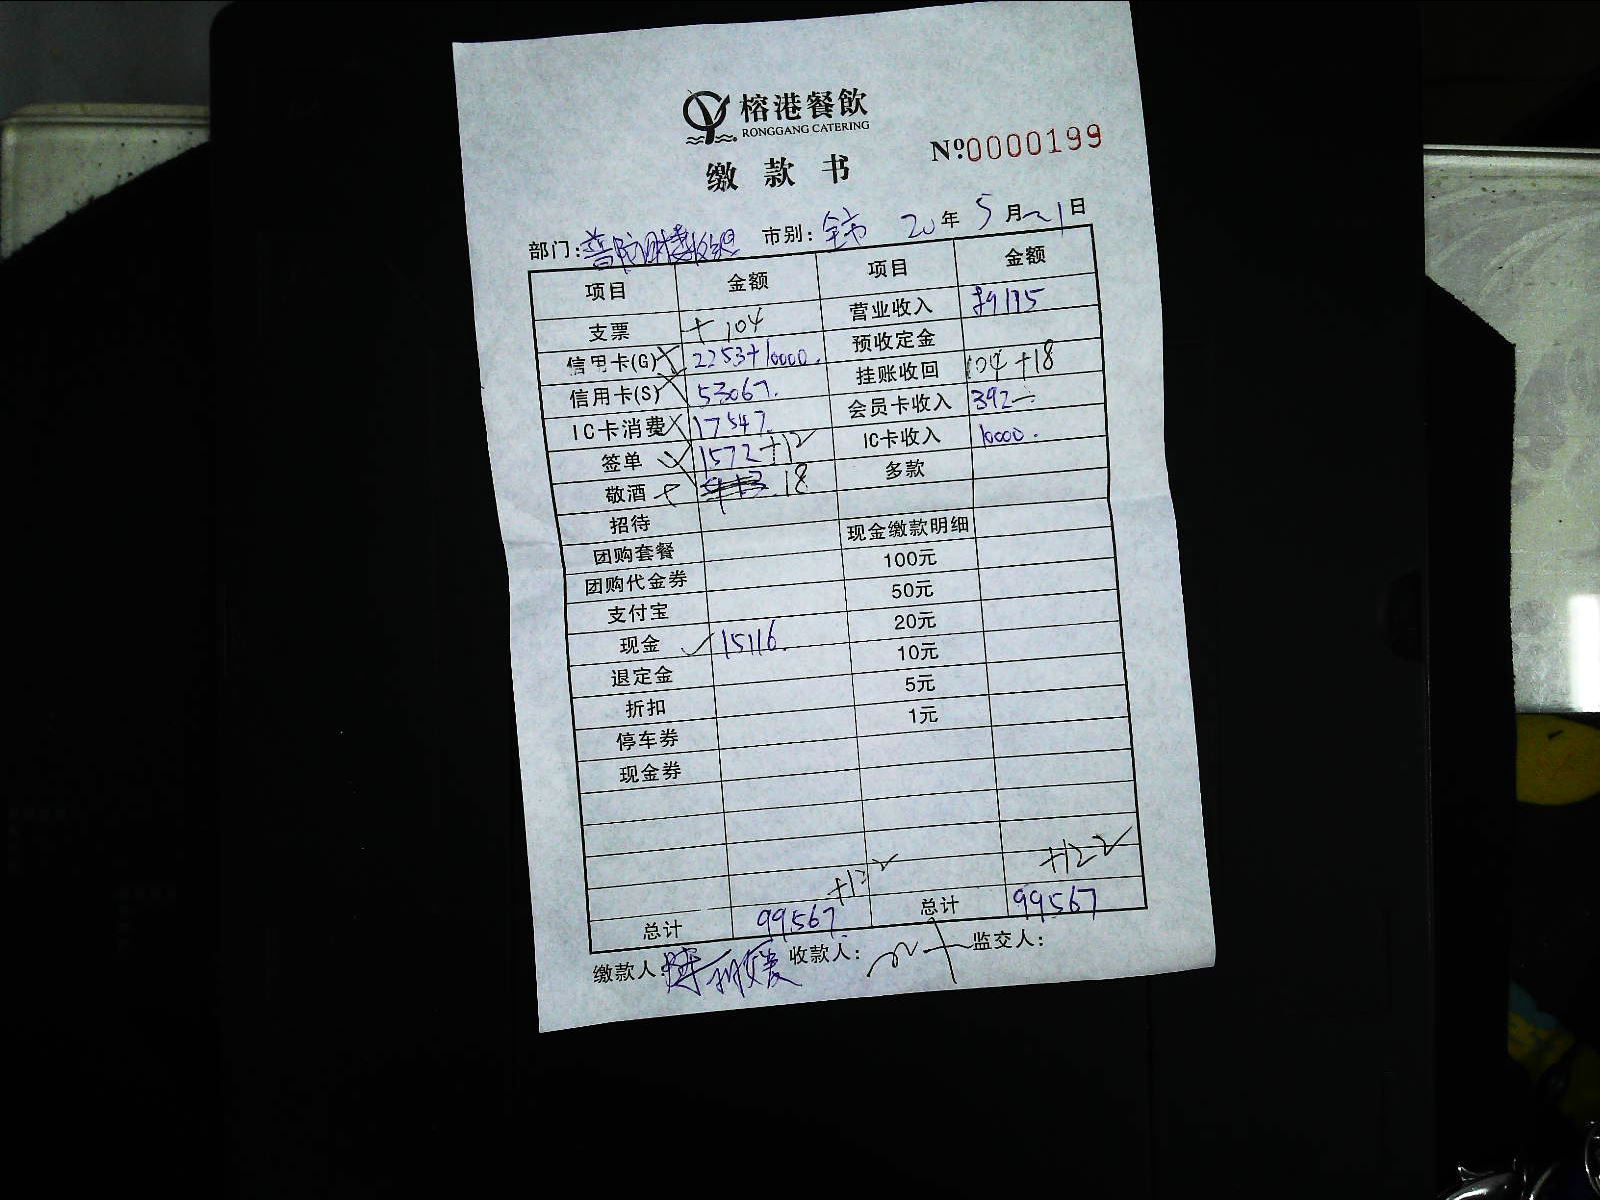 榕港餐飲
RONGGANG CATERING
缴款书
Nº0000199
部门: 市别:全市 20年5月21日
项目 金额 项目 金额
支票 + 104 营业收入 89175
信用卡(G) 2253+10000. 预收定金
信用卡(S) 53067. 挂账收回 104+18
IC卡消费 17547. 会员卡收入 392
签单 1572+12 IC卡收入 10000.
敬酒 18 多款
招待
团购套餐 现金缴款明细
团购代金券 100元
支付宝 50元
现金 ✓ 15116. 20元
退定金 10元
折扣 5元
停车券 1元
现金券
+122 +122
总计 99567 总计 99567
缴款人: 收款人: 监交人: